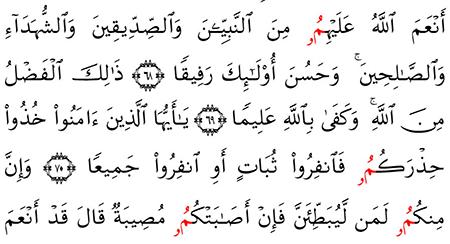 أَنْعَمَ اَللَّهُ عَلَيْهِمُۥ مِنَ اَلنَّبِيِّـۧنَ وَالصِّدِّيقِينَ وَالشُّهَدَآءِ
وَالصَّـٰلِحِينَۚ وَحَسُنَ أُوْلَـٰٓئِكَ رَفِيقًا ٦٨ ذَٰلِكَ اَلْفَضْلُ
مِنَ اَللَّهِۚ وَكَفَىٰ بِاللَّهِ عَلِيمًا ٦٩ يَـٰٓأَيُّهَا اَلَّذِينَ ءَامَنُواْ خُذُواْ
حِذْرَكُمُۥ فَانفِرُواْ ثُبَاتٍ أَوِ اِنفِرُواْ جَمِيعًا ٧٠ وَإِنَّ
مِنكُمُۥ لَمَن لَّيُبَطِّئَنَّ فَإِنْ أَصَـٰبَتْكُمُۥ مُصِيبَةٌ قَالَ قَدْ أَنْعَمَ